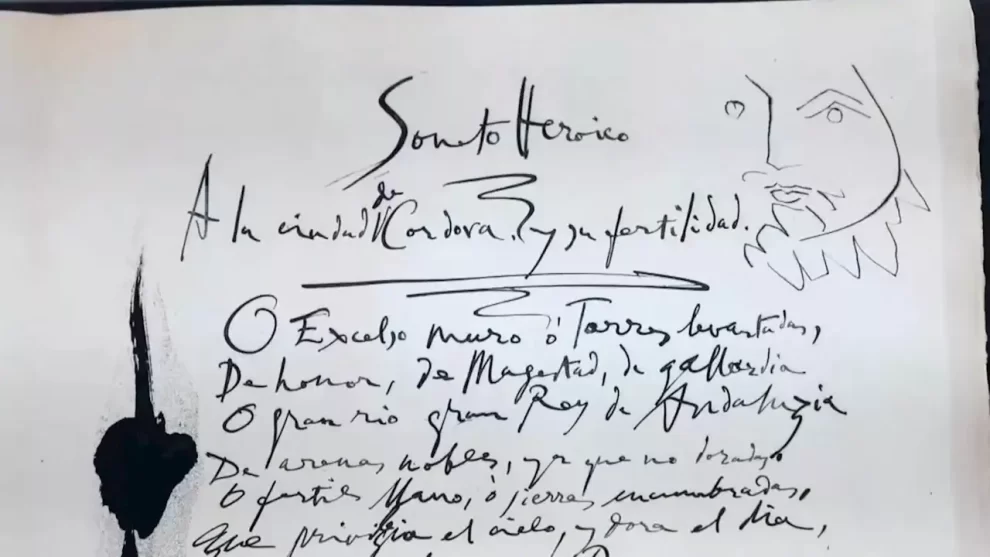 Soneto Heroico
A la ciudad de Cordova. y su fertilidad.
O Excelso muro ó Torres levantadas,
De honor, de Magestad, de gallardia
O gran rio gran Rey de Andaluzia
De arenas nobles, ya que no doradas.
O fertil llano, ó sierras encumbradas,
Que privilegia el cielo, y dora el dia,